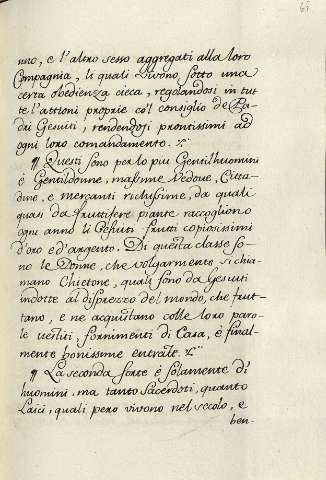 61
uno, e l'altro sesso aggregati alla loro
Compagnia, li quali vivono sotto una
certa obedienza cieca, regolandosi in tut-
te l'attioni proprie co'l consiglio de Pa-
dri Gesuiti, rendendosi prontissimi ad
ogni loro comandamento.
Questi sono per lo piu Gentil'huomini
e Gentildonne, massime Vedoue, Citta-
dine, e mercanti richissime, da quali
quasi da fruttifere piante raccogliono
ogni anno li Gesuiti frutti copiosissimi
d'oro e d'argento. Di questa classe so-
no le Donne, che volgarmente si chia-
mano Chietone, quali sono da Gesuiti
indotte al disprezzo del mondo, che frut-
tano, e ne acquistano colle loro paro-
le vestiti fornimenti di Casa, e final-
mente bonissime entrate.
La seconda sorte è solamente di
huomini, ma tanto Sacerdoti, quanto
Laici, quali pero vivono nel secolo, e
ben-